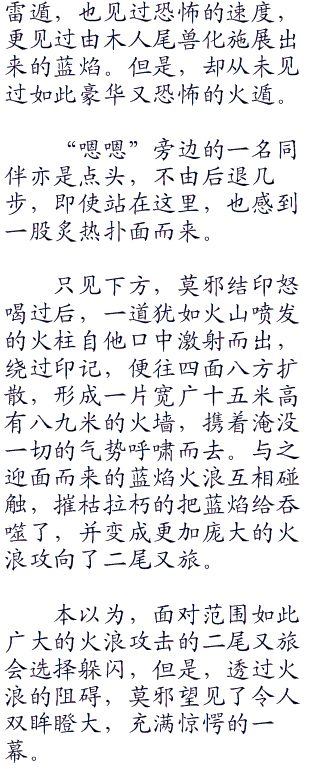 雷遁，也见过恐怖的速度，
更见过由木人尾兽化施展出
来的蓝焰。但是，却从未见
过如此豪华又恐怖的火遁。
“嗯嗯”旁边的一名同
伴亦是点头，不由后退几
步，即使站在这里，也感到
一股炙热扑面而来。
只见下方，莫邪结印怒
喝过后，一道犹如火山喷发
的火柱自他口中激射而出，
绕过印记，便往四面八方扩
散，形成一片宽广十五米高
有八九米的火墙，携着淹没
一切的气势呼啸而去。与之
迎面而来的蓝焰火浪互相碰
触，摧枯拉朽的把蓝焰给吞
噬了，并变成更加庞大的火
浪攻向了二尾又旅。
本以为，面对范围如此
广大的火浪攻击的二尾又旅
会选择躲闪，但是，透过火
浪的阻碍，莫邪望见了令人
双眸瞪大，充满惊愕的一
幕。